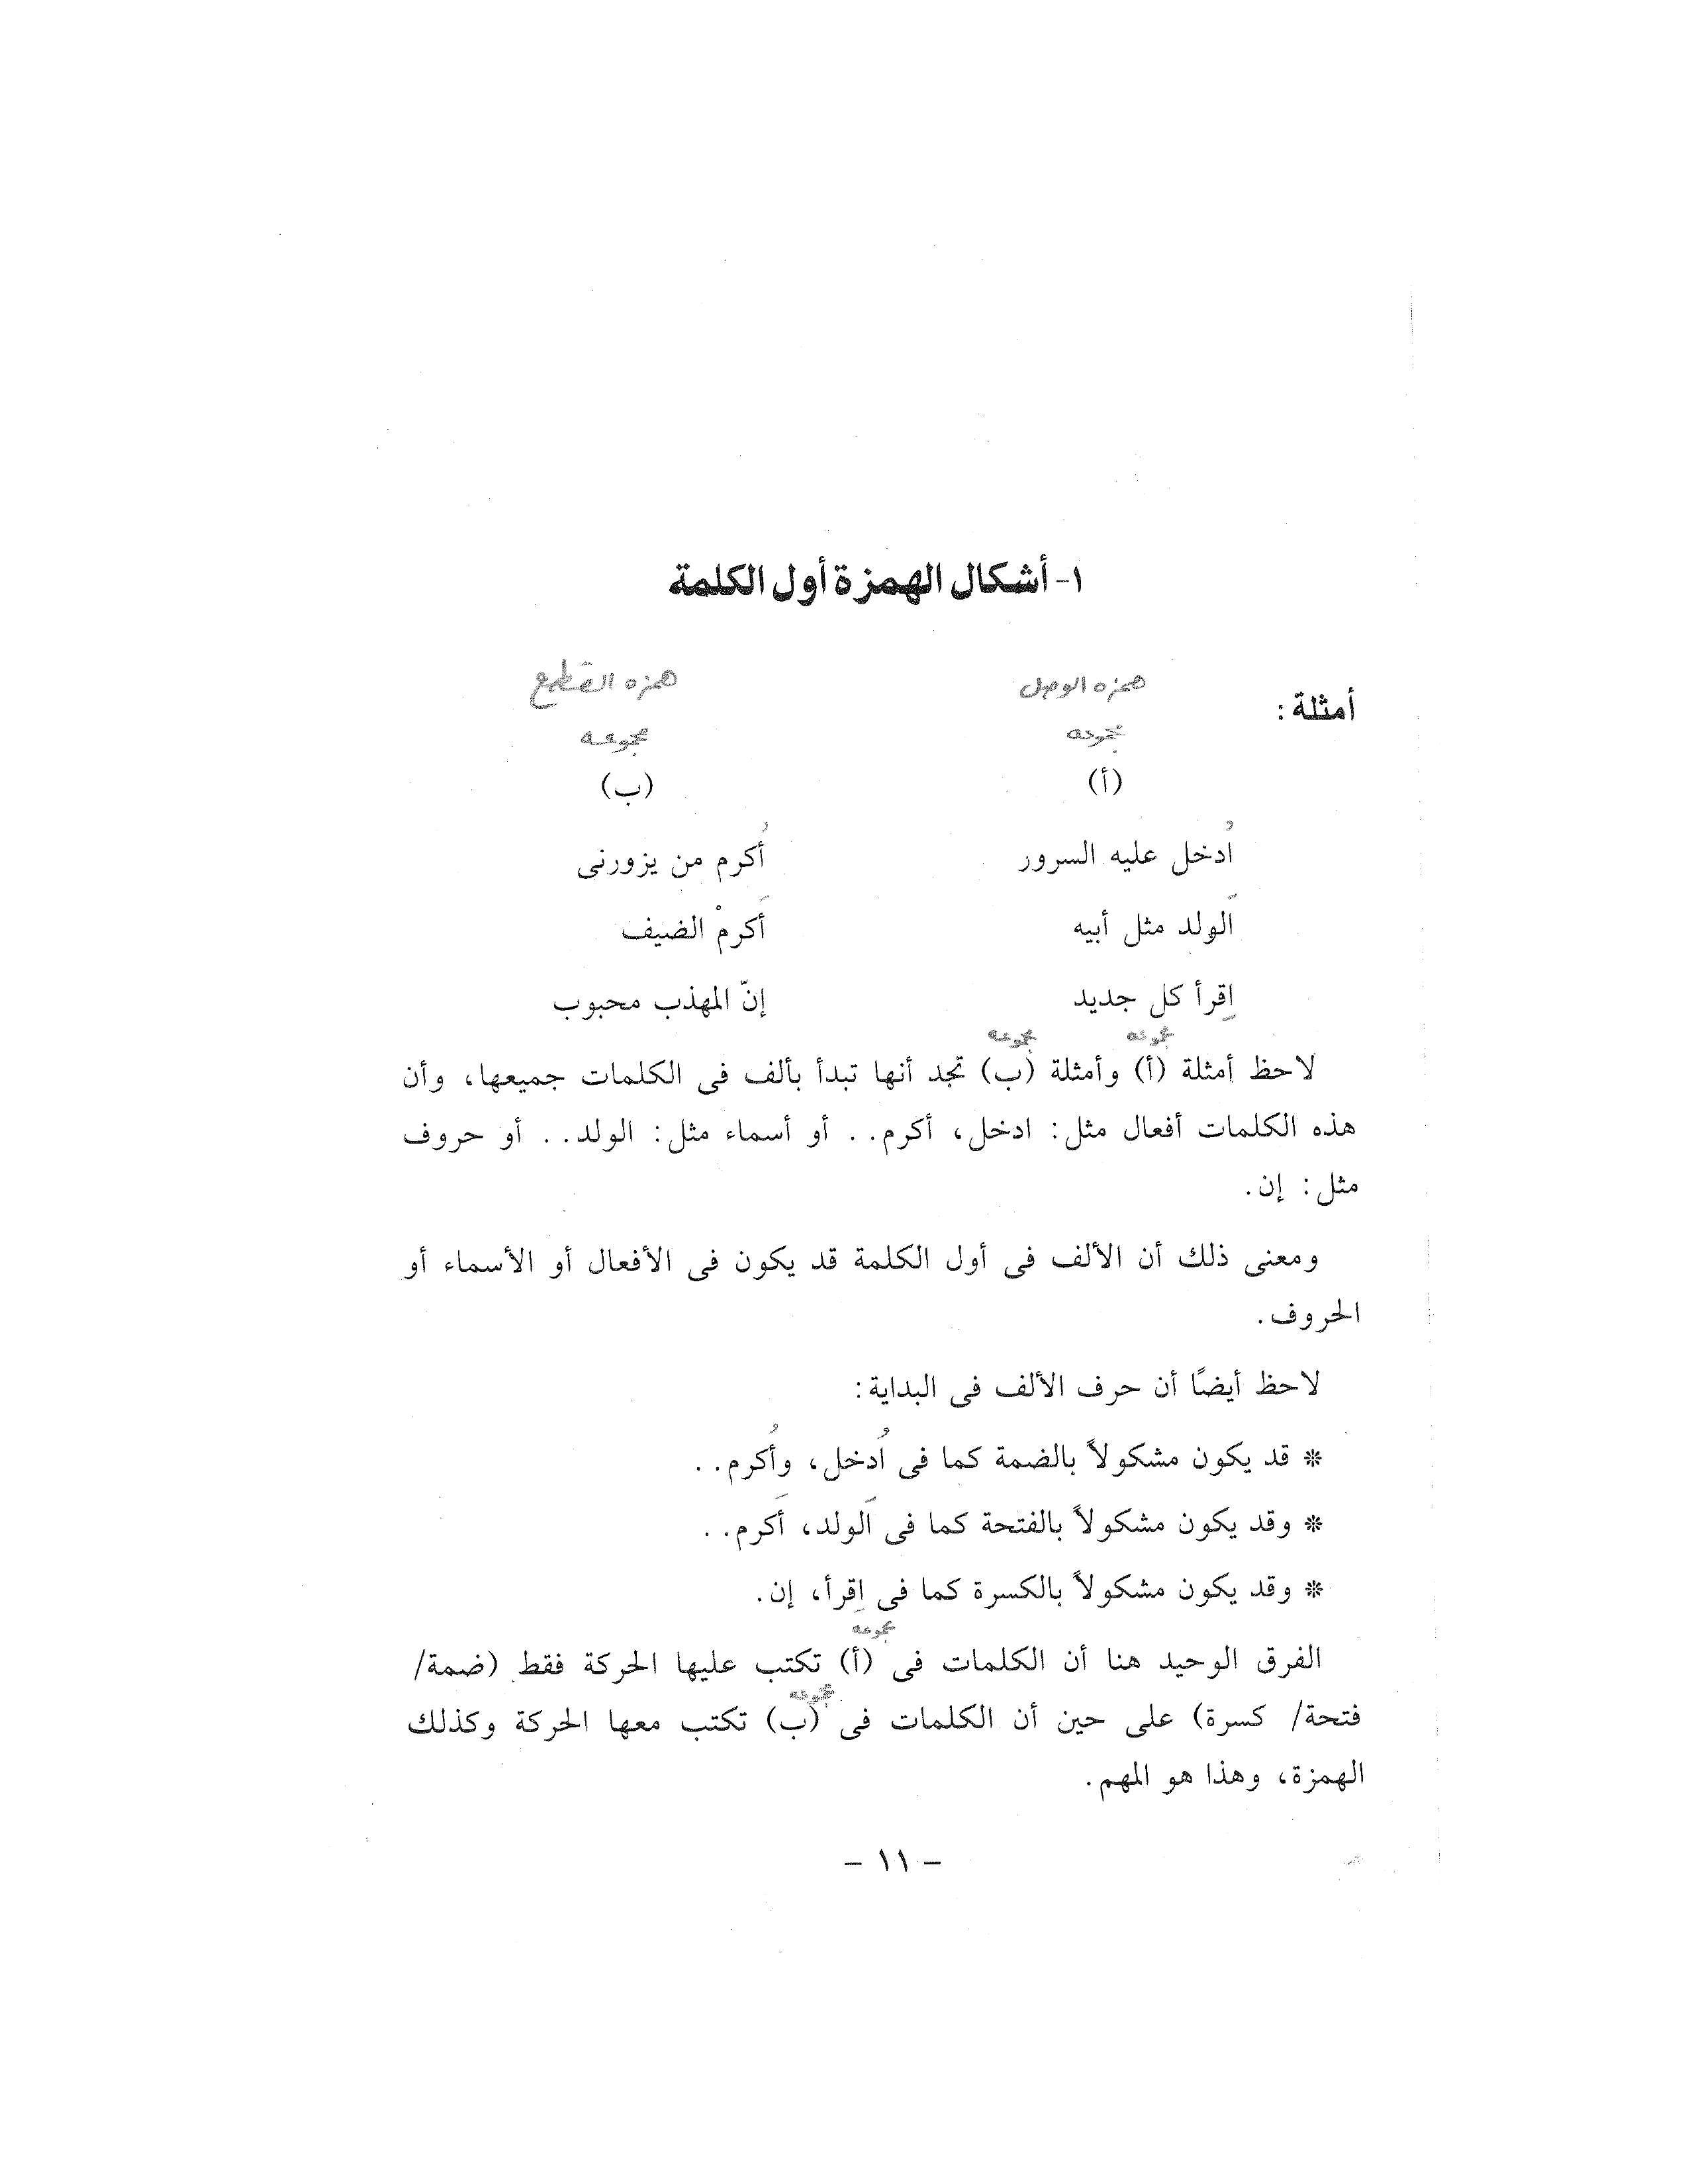 ١- أشكال الهمزة أول الكلمة
همزه الوصل همزه القطع
أمثلة :
مجموعه مجموعه
(أ) (ب)
اُدخل عليه السرور أُكرم من يزورنى
اَلولد مثل أبيه أَكرمْ الضيف
اِقرأ كل جديد إنّ المهذب محبوب
مجموعه مجموعه
لاحظ أمثلة (أ) وأمثلة (ب) تجد أنها تبدأ بألف فى الكلمات جميعها، وأن
هذه الكلمات أفعال مثل: ادخل، أكرم.. أو أسماء مثل: الولد.. أو حروف
مثل: إن.
ومعنى ذلك أن الألف فى أول الكلمة قد يكون فى الأفعال أو الأسماء أو
الحروف.
لاحظ أيضًا أن حرف الألف فى البداية:
* قد يكون مشكولاً بالضمة كما فى اُدخل، وأُكرم..
* وقد يكون مشكولاً بالفتحة كما فى اَلولد، أَكرم..
* وقد يكون مشكولاً بالكسرة كما فى اِقرأ، إن.
مجموعه
الفرق الوحيد هنا أن الكلمات فى (أ) تكتب عليها الحركة فقط (ضمة/
مجموعه
فتحة/ كسرة) على حين أن الكلمات فى (ب) تكتب معها الحركة وكذلك
الهمزة، وهذا هو المهم.
- ١١ -